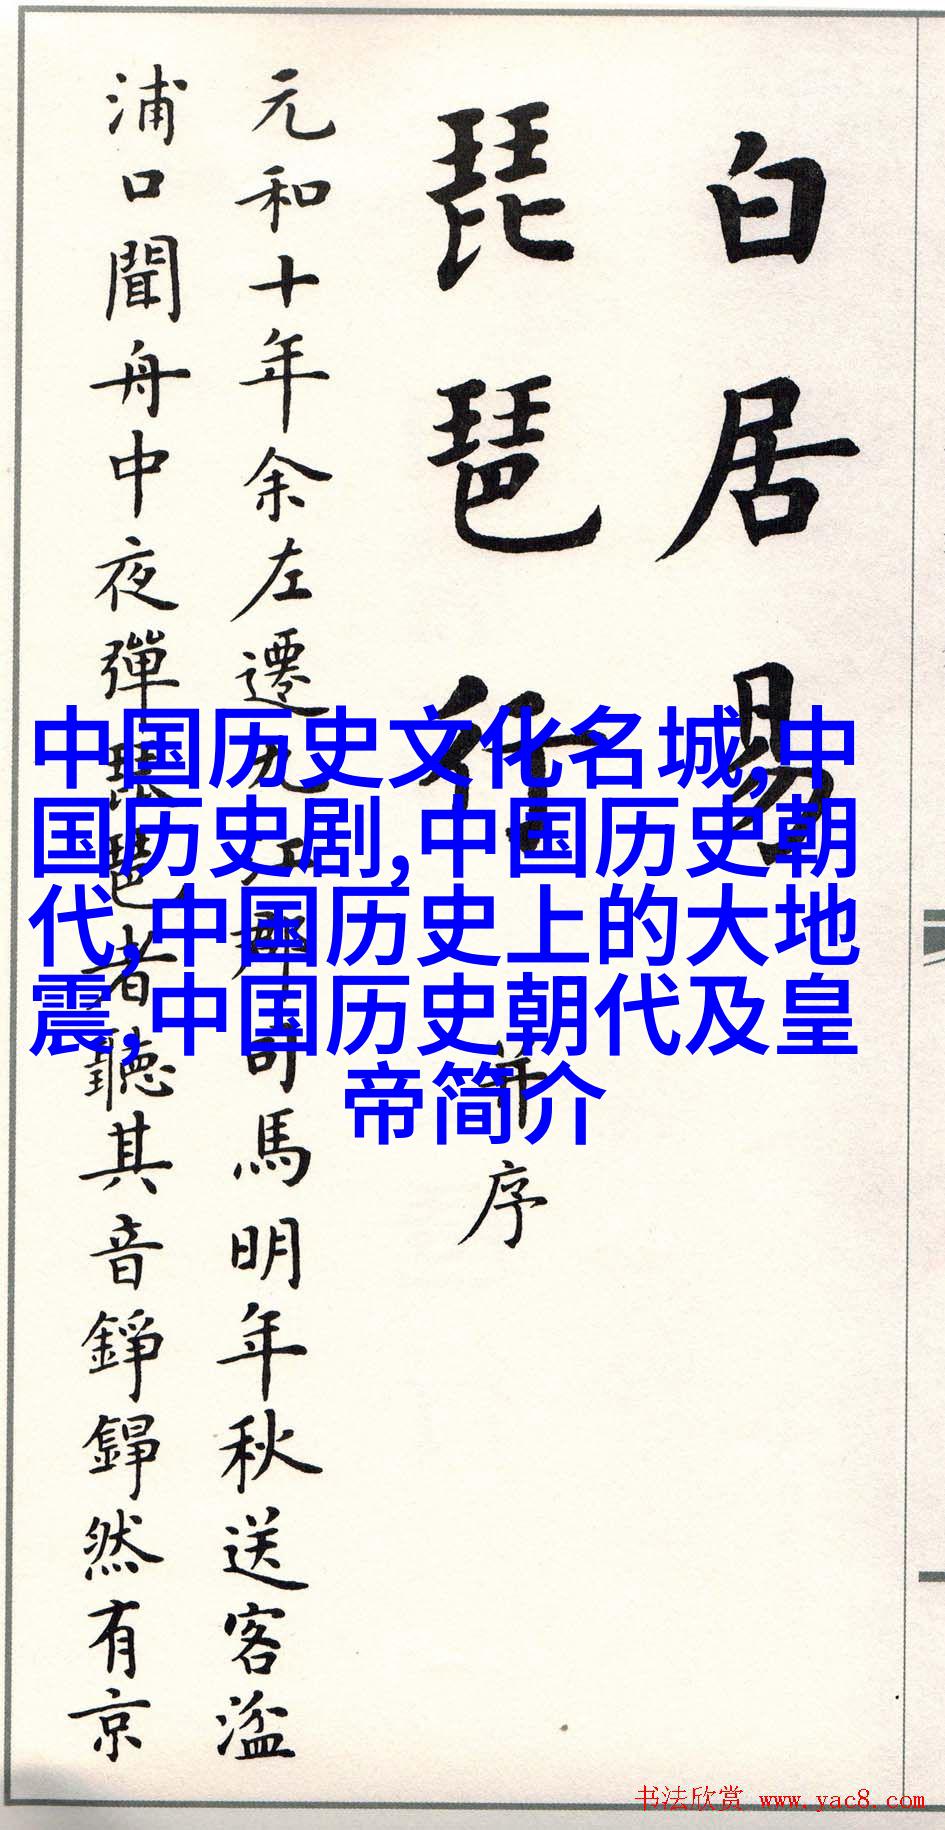 白居易
琵琶行 并序
元和十年余左遷九江郡司馬明年秋送客湓
浦口聞舟中夜彈琵琶者聽其音錚錚然有京
中国历史文化名城,中
国历史剧,中国历史朝
代,中国历史上的大地
震,中国历史朝代及皇
帝简介
书法欣赏 www.yac8.com